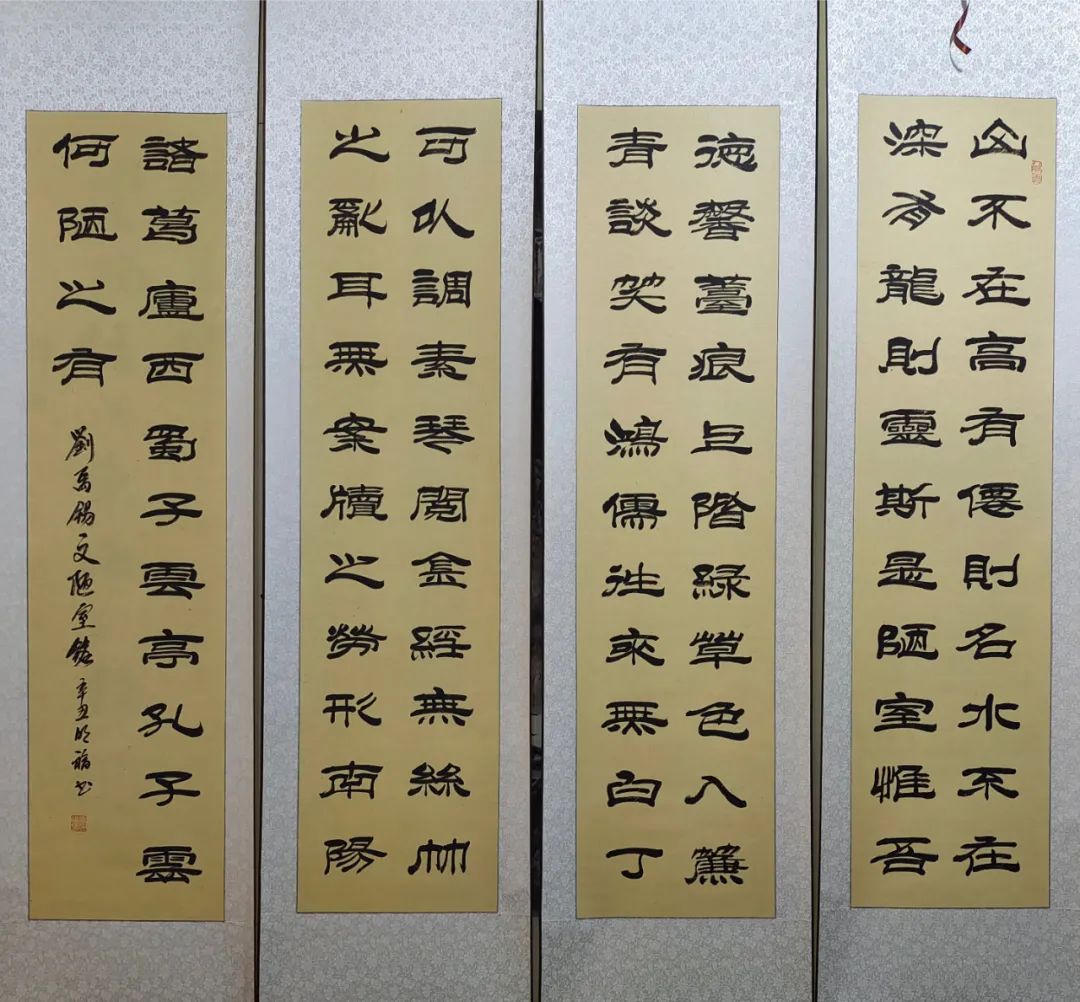 山不在高有僊則名水不在
深有龍則靈斯是陋室惟吾
德馨薹痕上階綠草色入簾
青談笑有鴻儒往來無白丁
可以調素琴閱金經無絲竹
之亂耳無案牘之勞形南陽
諸葛廬西蜀子雲亭孔子雲
何陋之有
劉禹錫文陋室銘 辛丑明福书